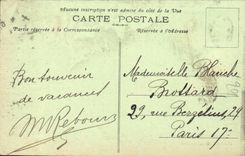 Aucune inscription n'est admise du côté de la Vue
CARTE POSTALE
Partie réservée à la Correspondance
Réservée à l'Adresse
Bon souvenir
de vacances
M Rebours
Mademoiselle Blanche
Brottard
29, rue Berzélius, 29
Paris 17e